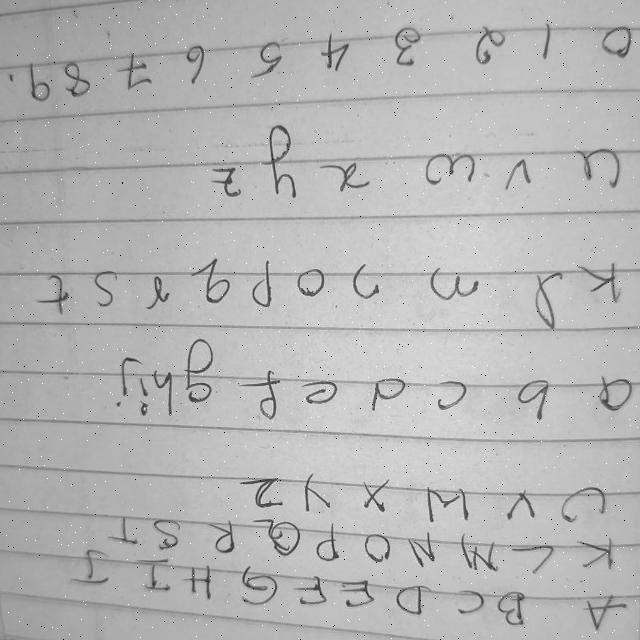 A B C D E F G H I J
K L M N O P Q R S T
U V W X Y Z
a b c d e f g h i j
k l m n o p q r s t
u v w x y z
0 1 2 3 4 5 6 7 8 9.